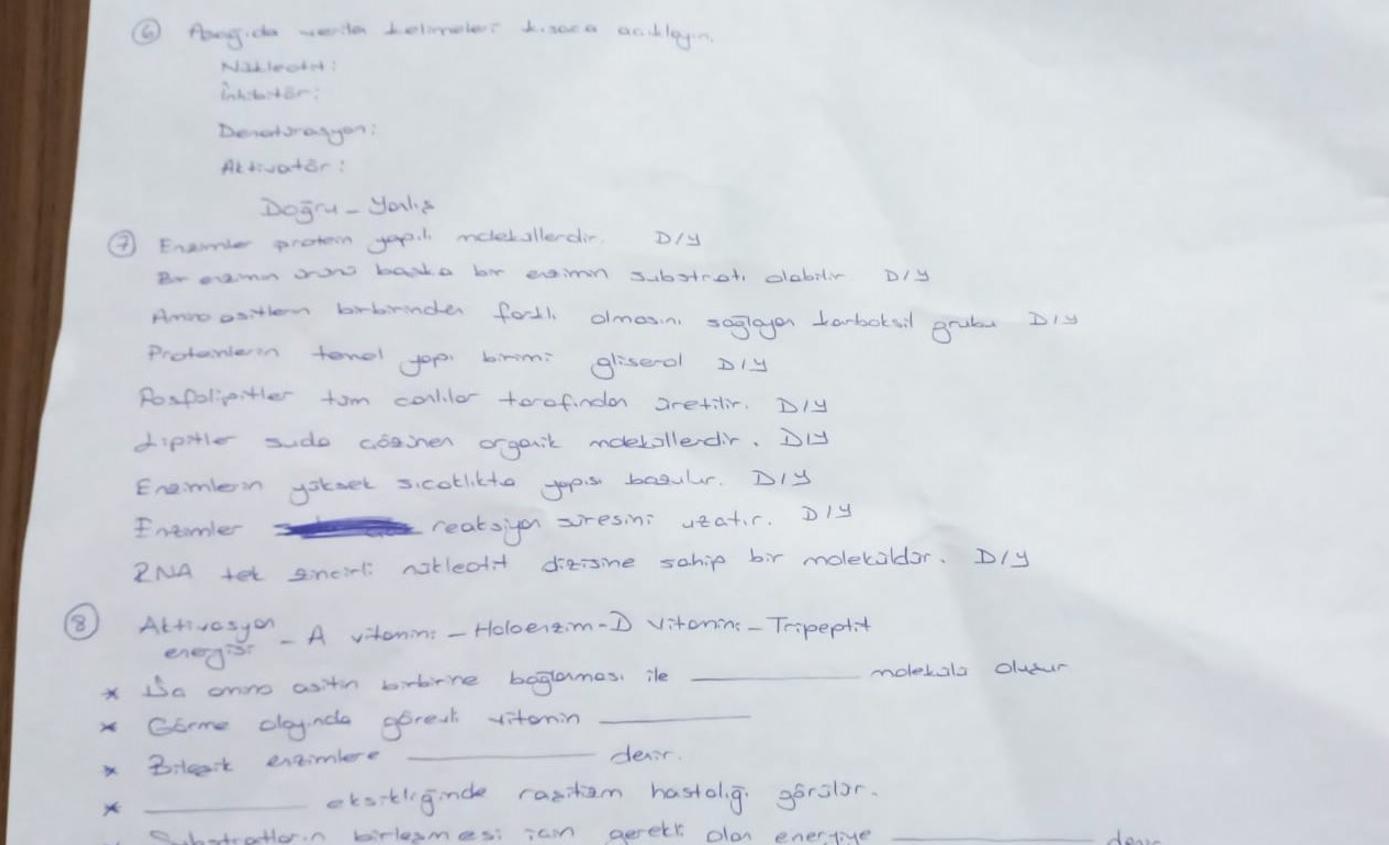 ⑥ Aşağıda verilen kelimeleri kısaca açıklayın.
Nükleotit:
İnhibitör:
Denaturasyon:
Aktivatör:
Doğru - Yanlış
⑦ Enzimler protein yapılı moleküllerdir. D/Y
Bir enzimin ürünü başka bir enzimin substratı olabilir D/Y
Amino asitlerin birbirinden farklı olmasını sağlayan karboksil grubu D/Y
Proteinlerin temel yapı birimi gliserol D/Y
Fosfolipitler tüm canlılar tarafından üretilir. D/Y
Lipitler suda çözünen organik moleküllerdir. D/Y
Enzimlerin yüksek sıcaklıkta yapısı bozulur. D/Y
Enzimler reaksiyon süresini uzatır. D/Y
RNA tek zincirli nükleotit dizisine sahip bir moleküldür. D/Y
⑧ Aktivasyon energisi - A vitamini - Holoenzim - D Vitamini - Tripeptit
* Üç amino asitin birbirine bağlanması ile ______ molekülü oluşur
* Görme olayında görevli vitamin ______
* Bileşik enzimlere ______ denir.
* ______ eksikliğinde raşitizm hastalığı görülür.
Substratların birleşmesi için gerekli olan enerjiye ______ denir